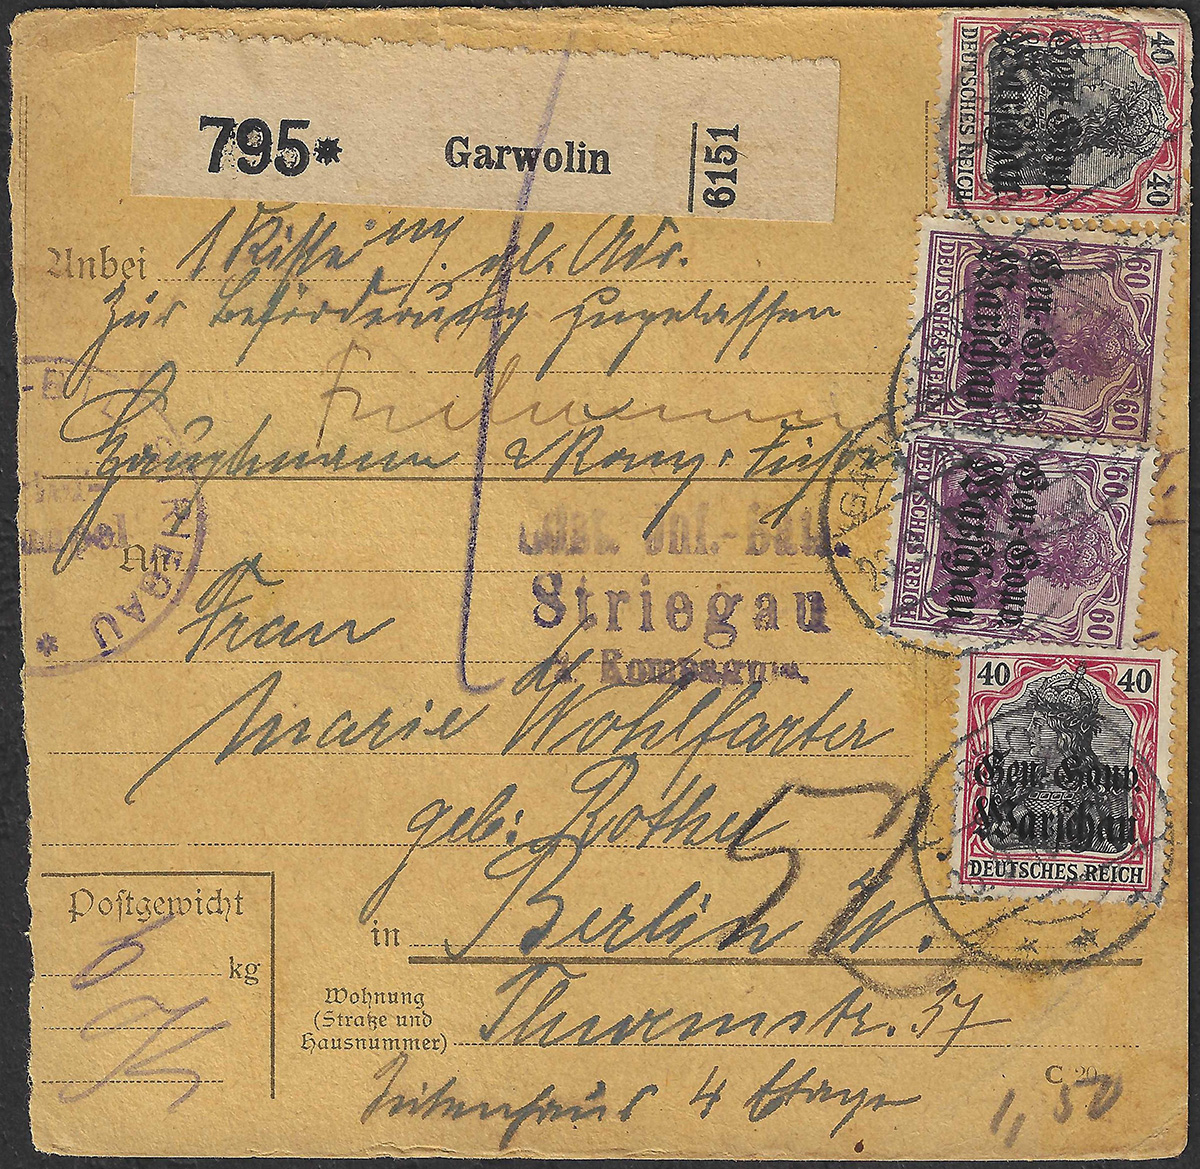 795* Garwolin 6151
Anbei 1 Kiste m. gl. Adr.
Zur Beförderung zugelassen
Hauptmann Komp.
An
Frau
Striegau
Kompagnie.
Marie Wohlfarter
geb: Rother
in Berlin W.
Wohnung
(Straße und
Hausnummer)
Thurmstr. 37
Seitenhaus 4 Etage
C 20
1,50
Postgewicht
6 kg
NEGAU *
40 40
DEUTSCHES REICH
Gen.-Gouv.
Warschau
60 60
DEUTSCHES REICH
Gen.-Gouv.
Warschau
60 60
DEUTSCHES REICH
Gen.-Gouv.
Warschau
40 40
Gen.-Gouv.
Warschau
DEUTSCHES REICH